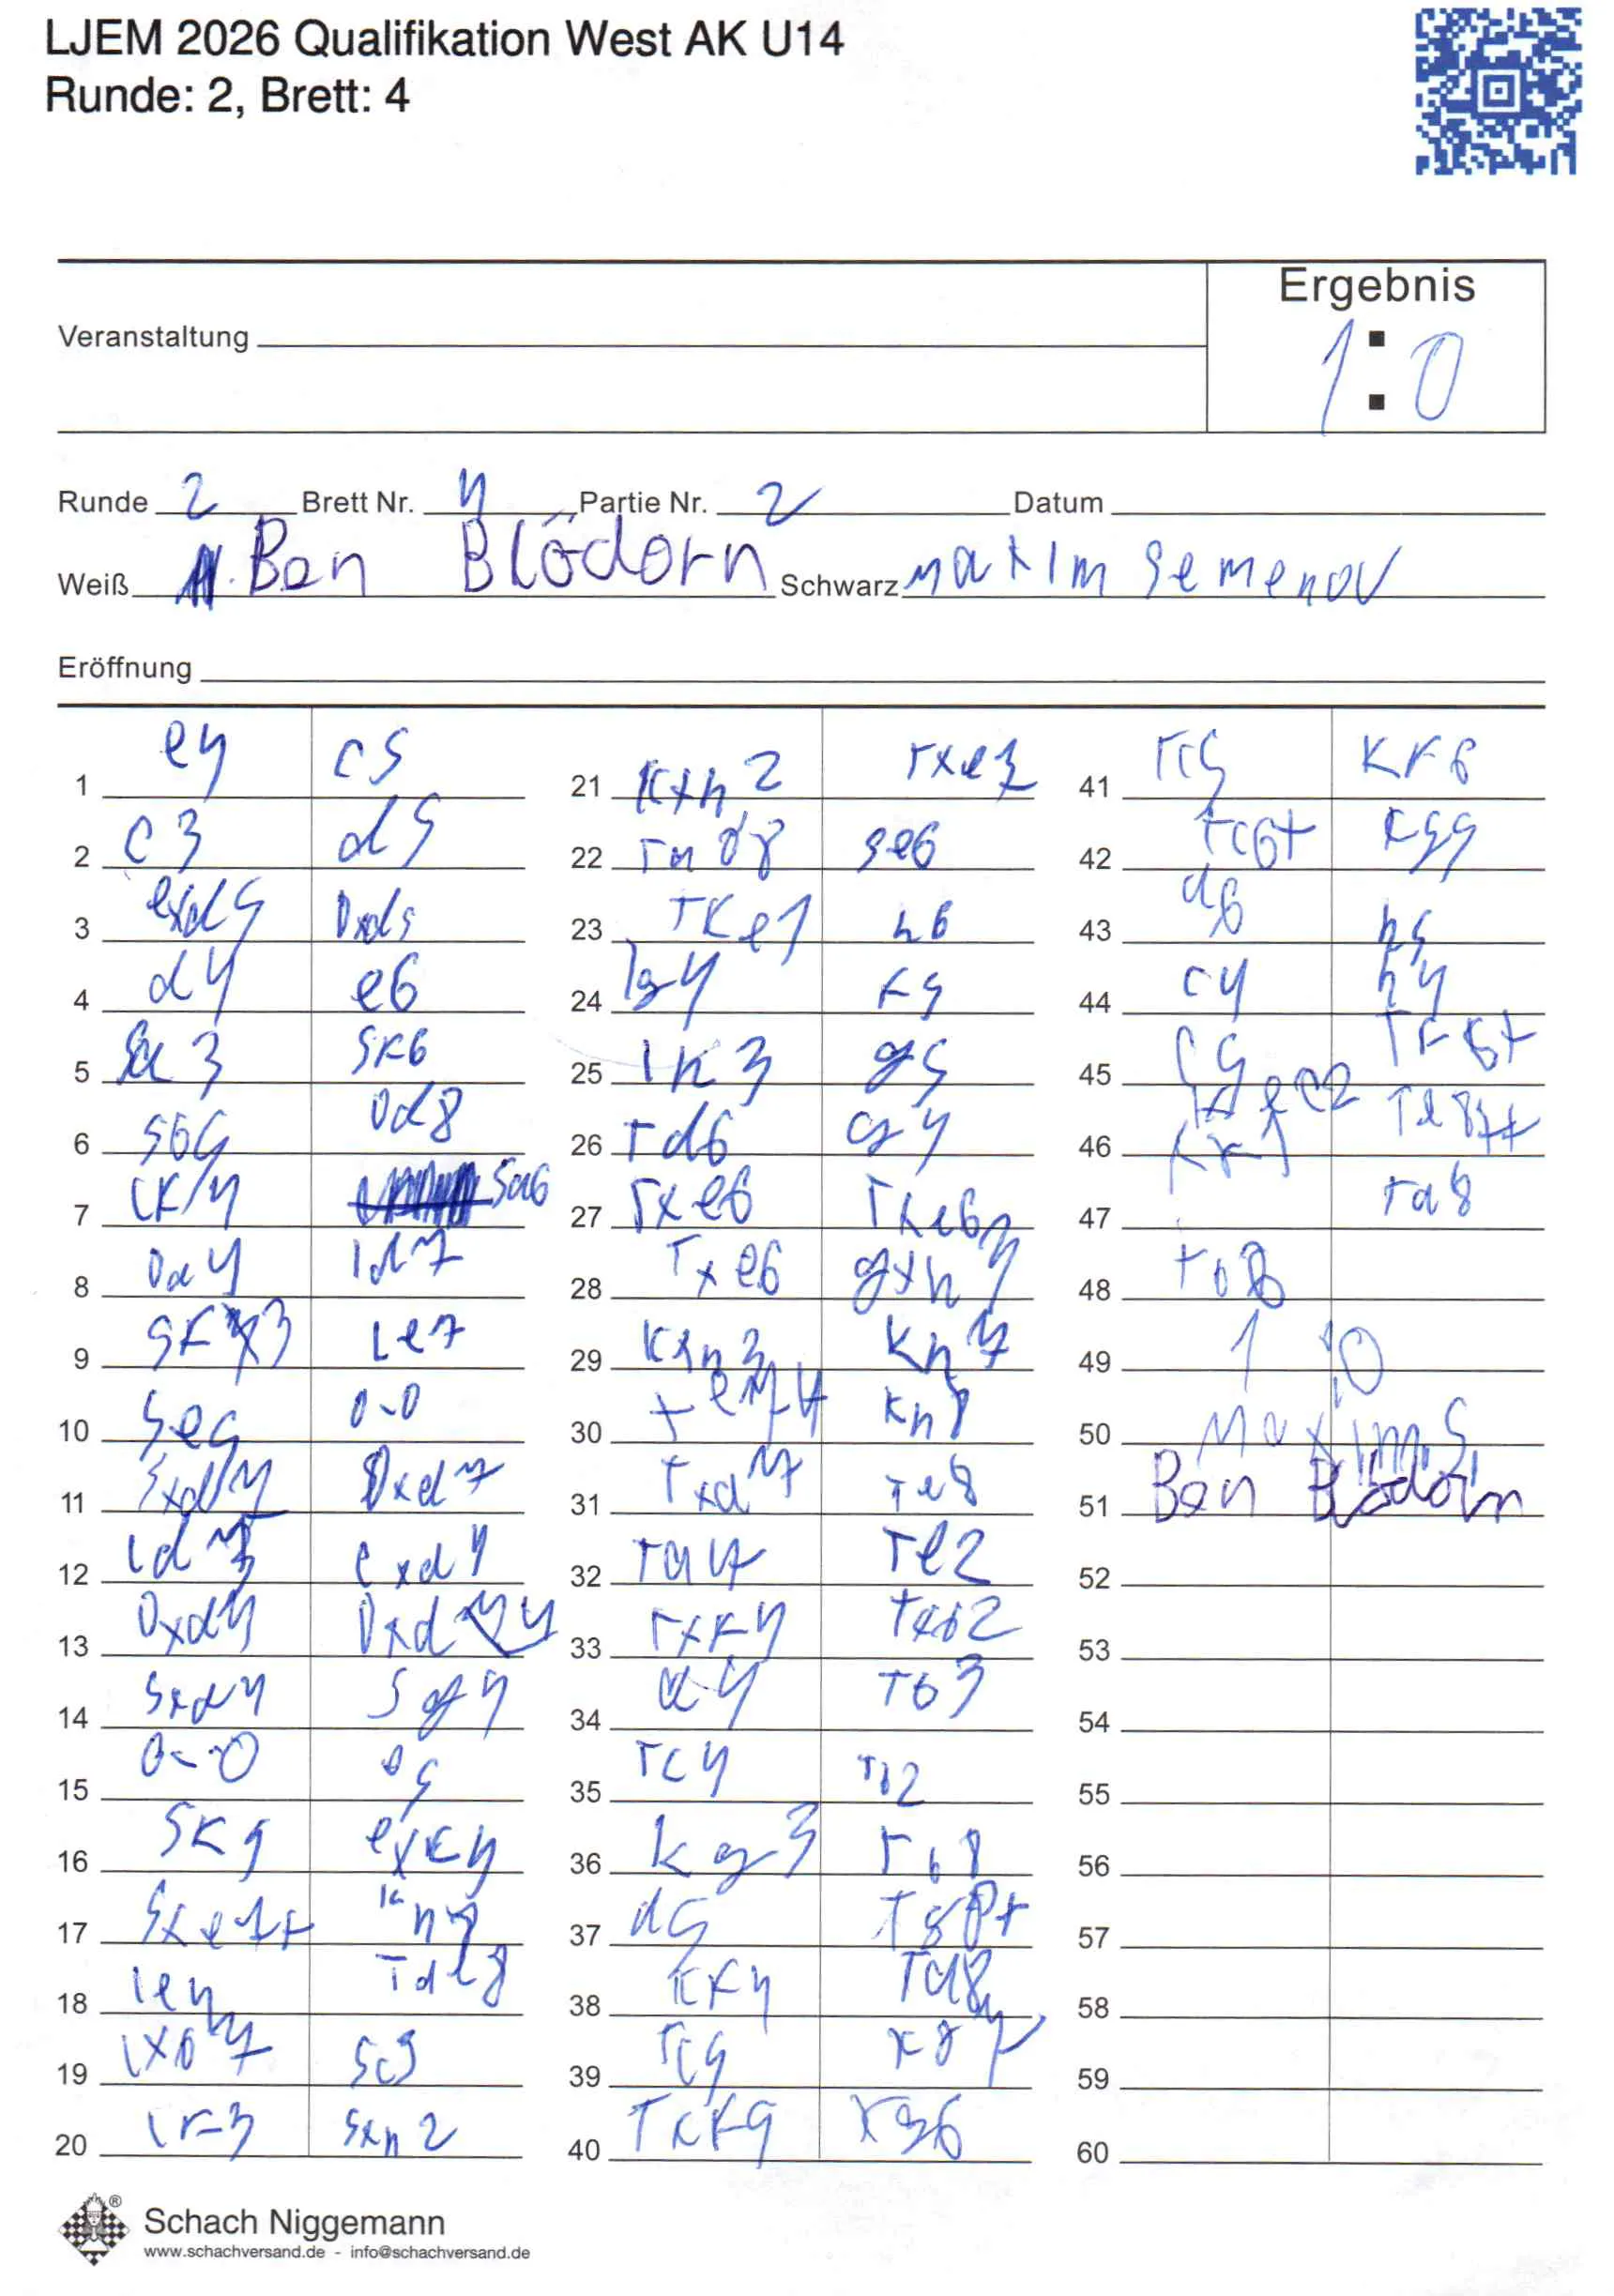 LJEM 2026 Qualifikation West AK U14
Runde: 2, Brett: 4
Ergebnis
Veranstaltung
1 : 0
Runde 2 Brett Nr. 4 Partie Nr. 2 Datum
Weiß Ben Blödorn Schwarz Maxim Semenov
Eröffnung
1 e4 c5
2 c3 d5
3 exd5 Dxd5
4 d4 e6
5 Sa3 Sf6
6 Sb5 Dd8
7 Lf4 Sa6
8 Da4 Ld7
9 Sf3 Le7
10 Se5 0-0
11 Sxd7 Dxd7
12 Ld3 exd4
13 Dxd4 Dxd4
14 Sxd4 Sg4
15 0-0 e5
16 Sf5 exf4
17 Sxe7+ Kh8
18 Le4 Tae8
19 Lxb7 Sc5
20 Lf3 Sxh2
21 Kxh2 Txe7
22 Tad8 Se6
23 Tfe1 h6
24 Lg4 f5
25 Lh3 g5
26 Td6 g4
27 Txe6 Txe6
28 Txe6 gxh3
29 Kxh3 Kh7
30 Te7+ Kh8
31 Txa7 Te8
32 Ta4 Te2
33 Txf4 Txb2
34 a4 Tb3
35 Tc4 Tb2
36 Kg3 Tb8
37 a5 Tg8+
38 Kf4 Ta8
39 Tc5 Kg7
40 Txf5 Kg6
41 Tc5 Kf6
42 Tc6+ Kg5
43 a6 h5
44 c4 h4
45 c5 Tf8+
46 Kf1 Te8+
47 Ta8
48 Tb8
49 1:0
50 Maxim S.
51 Ben Blödorn
52
53
54
55
56
57
58
59
60
Schach Niggemann
www.schachversand.de - info@schachversand.de